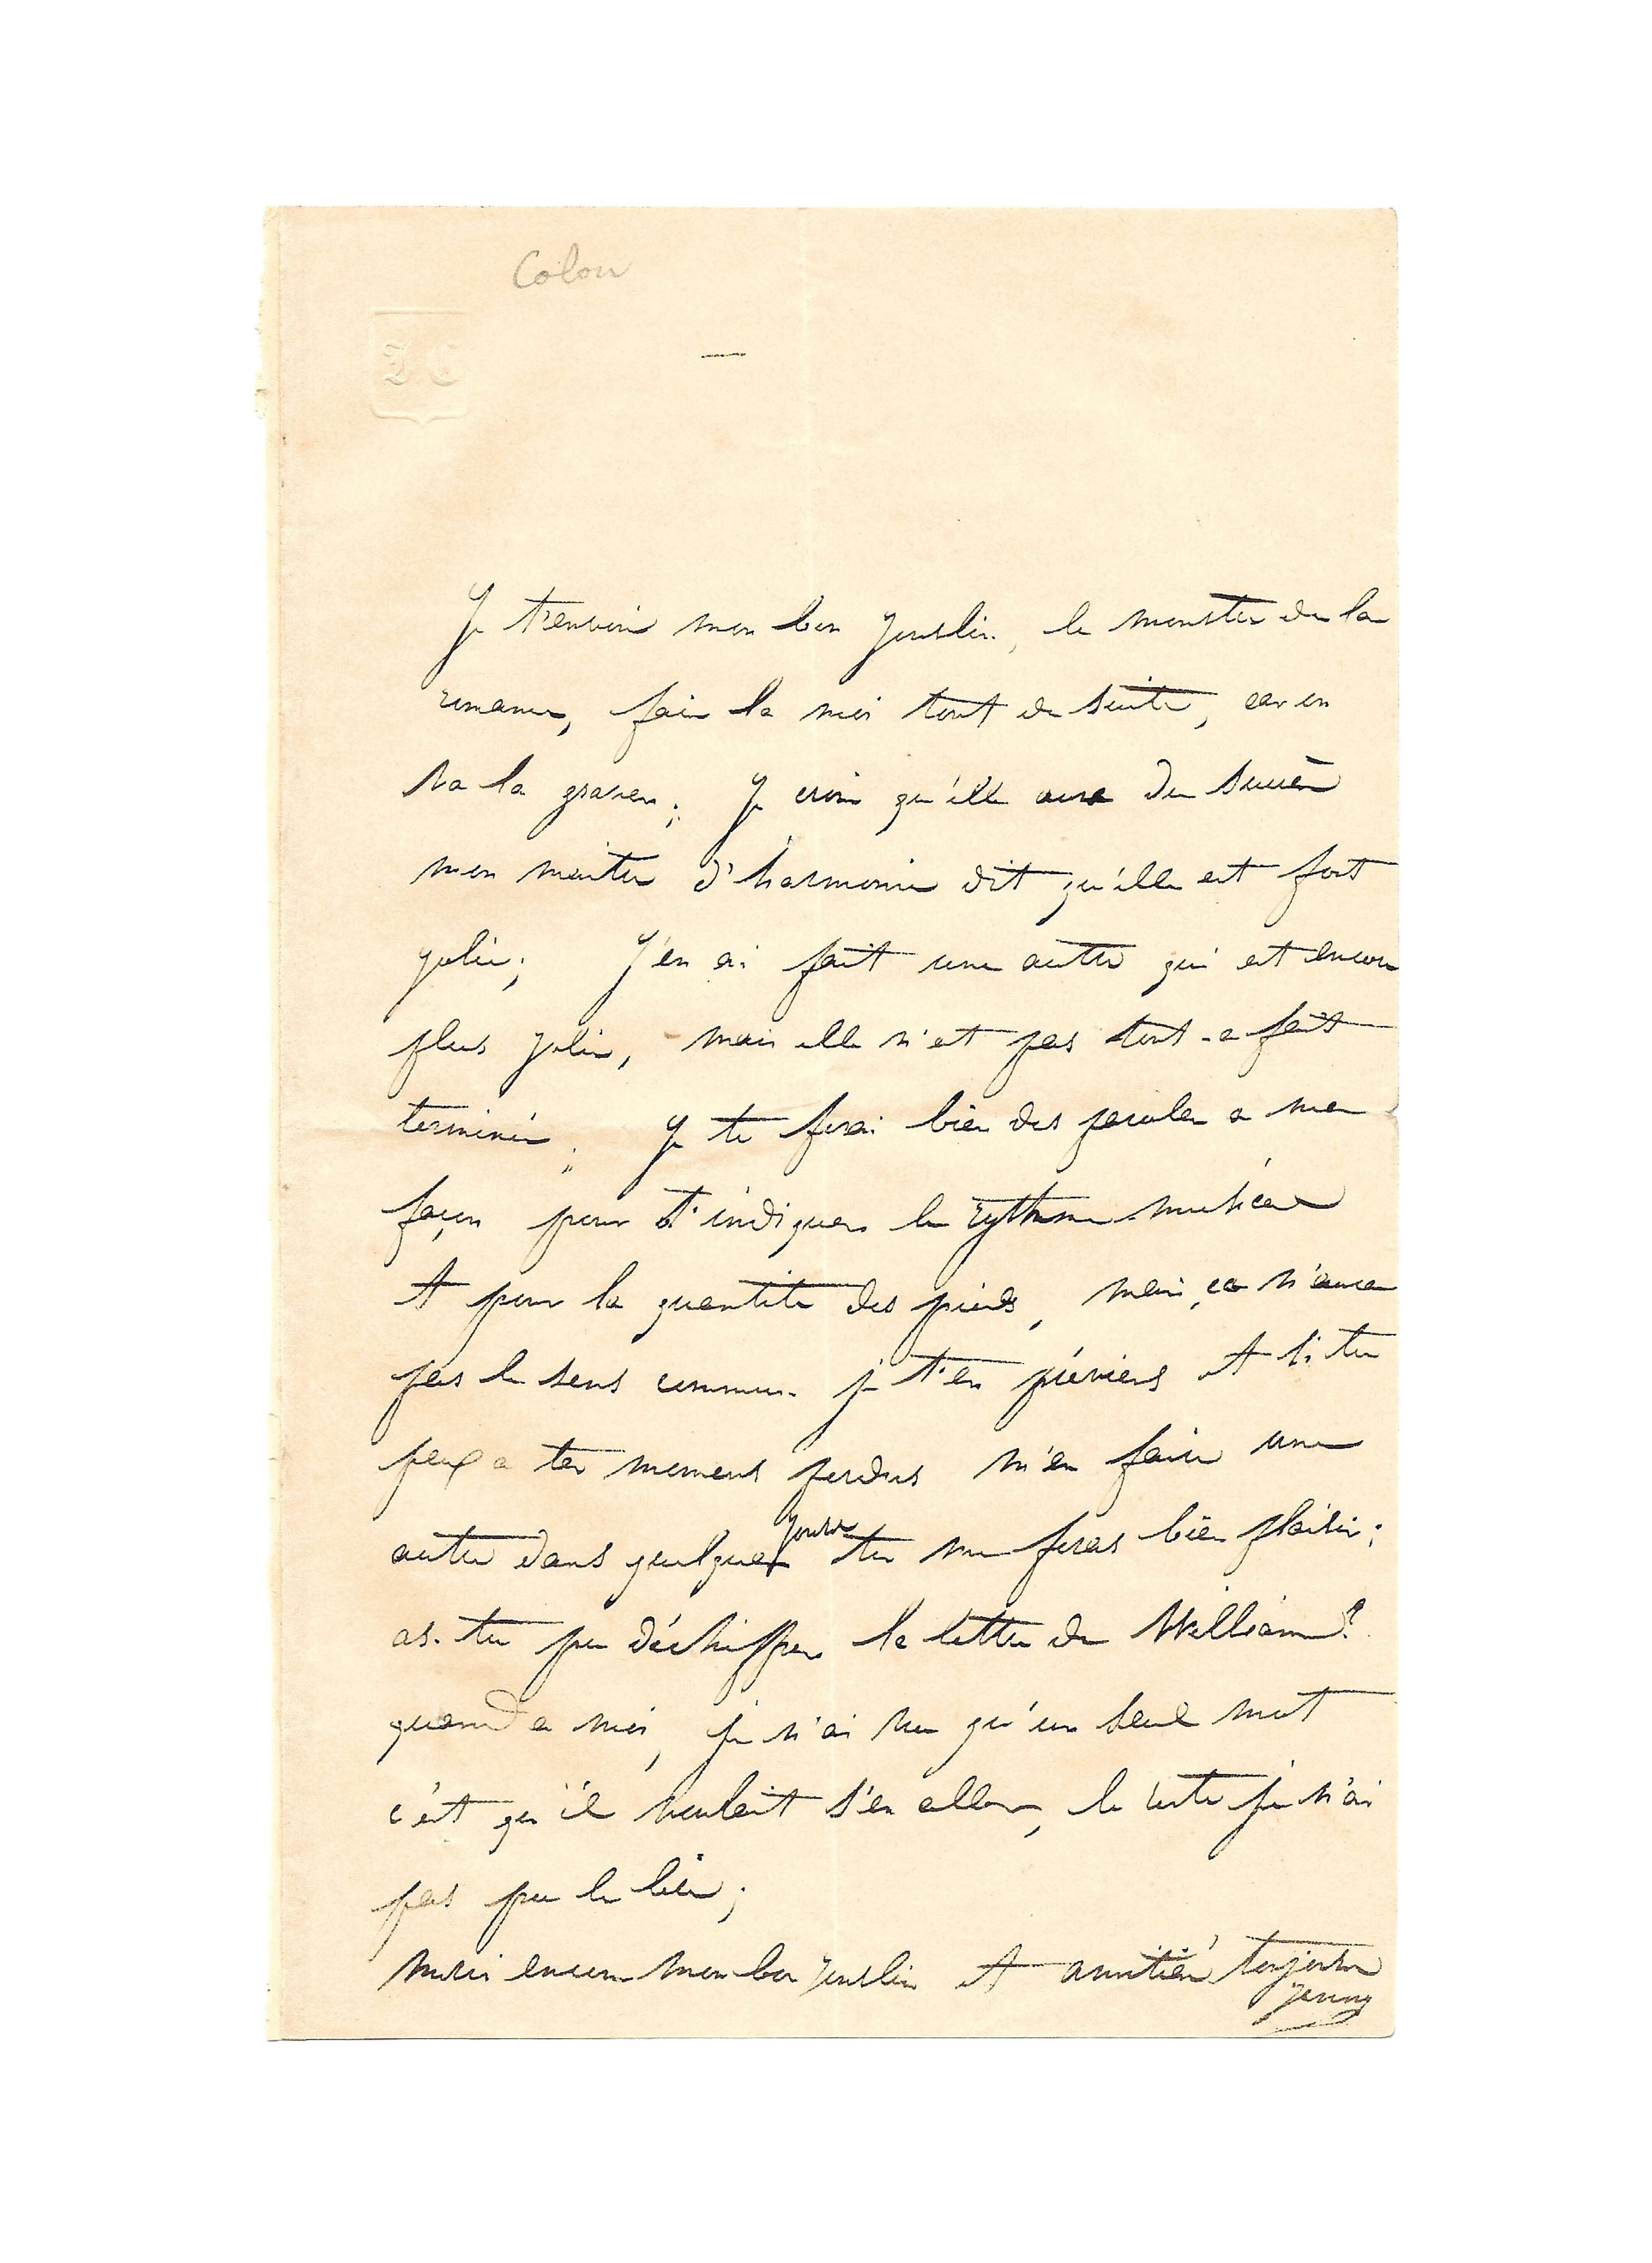 Colon
J C
Je t'envoie mon bon Jouslin, le monstre de la
romance, fais la moi tout de suite, car on
va la graver; Je crois qu'elle aura du succès
mon maitre d'harmonie dit qu'elle est fort
jolie; J'en ai fait une autre qui est encore
plus jolie, mais elle n'est pas tout-a fait
terminée; Je te ferai bien des paroles a ma
façon pour t'indiquer le rythme musical
et pour la quantité des pieds, mais ça n'aura
pas le sens commun je t'en préviens et si tu
peux a tes momens perdus m'en faire une
autre dans quelques jours tu me feras bien plaisir;
as-tu pu déchiffrer la lettre de William?
quand a moi, je n'ai vu qu'un seul mot
c'est qu'il voulait s'en aller, le reste je n'ai
pas pu le lire;
merci encore mon bon Jouslin et amitiés toujours
Jenny